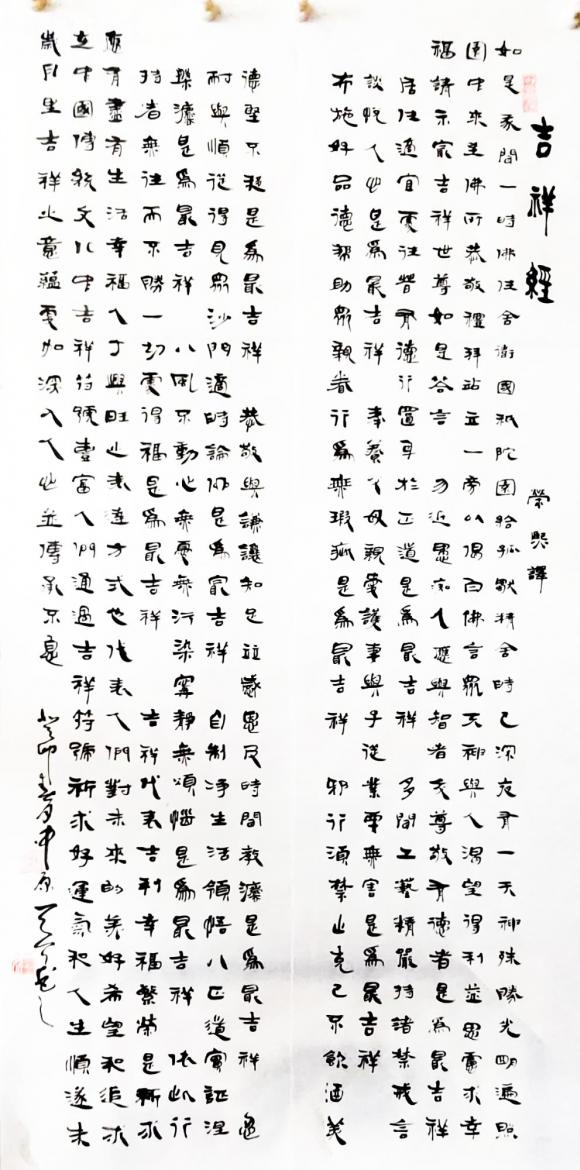 吉祥經
榮熙譯
如是我聞一時佛住舍衛國祇陀園給孤獨精舍時已深夜有一天神殊勝光明遍照
園中來至佛所恭敬禮拜站立一旁以偈白佛言眾天神與人渴望得利益思慮求幸
福請示最吉祥世尊如是答言 勿近愚痴人應與智者交尊敬有德者是為最吉祥
居住適宜處往昔有德行置身於正道是為最吉祥 多聞工藝精嚴持諸禁戒言
談悅人心是為最吉祥 奉養父母親愛護妻與子從業要無害是為最吉祥
布施好品德幫助眾親眷行為無瑕疵是為最吉祥 邪行須禁止克己不飲酒美
德堅不移是為最吉祥 恭敬與謙讓知足並感恩及時聞教灋是為最吉祥 忍
耐與順從得見眾沙門適時論仰是為最吉祥 自制淨生活領悟八正道實証涅
槃灋是為最吉祥 八風不動心無憂無污染寧靜無煩惱是為最吉祥 依此行
持者無往而不勝一切處得福是為最吉祥 吉祥代表吉利幸福繁榮是祈求
有盡有生活幸福人丁興旺之表達方式也代表人們對未來的美好希望和追求
在中國傳統文化中吉祥符號豐富人們通過吉祥符號祈求好運氣和人生順遂未
歲月里吉祥之意蘊更加深入人心並傳承不息
癸卯春月中原